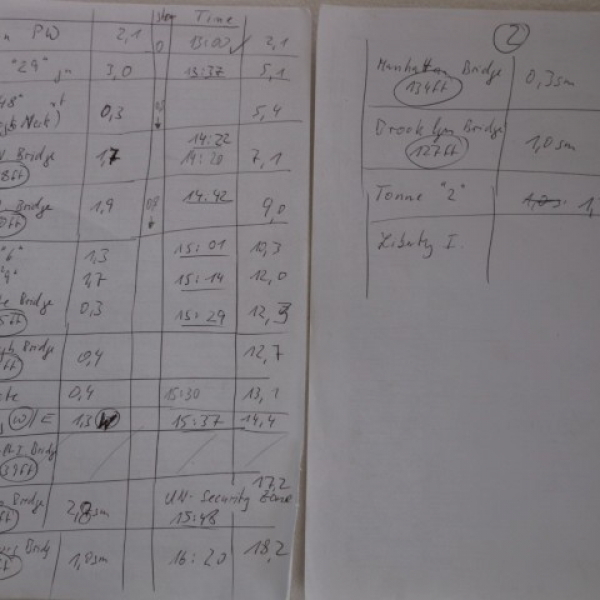 slay Time
PW 2,1 0 13:00 ✓ 2,1
"29" 3,0 13:37 5,1
48"
Neck) 0,3 5,4
14:22
Bridge 1,7 14:20 7,1
8ft
Bridge 1,9 14:42 9,0
0ft
"6" 1,3 15:01 10,3
"9" 1,7 15:14 12,0
Bridge 0,3 15:29 12,3
5ft
Bridge 0,4 12,7
ft
0,4 15:30 13,1
(W)/E 1,3 W 15:37 14,4
Bridge
39ft
17,2
Bridge 2,8sm UN-Security Zone
ft 15:48
Bridg 1,0sm 16:20 18,2
ft
2
Manhattan Bridge 0,3sm
134ft
Brooklyn Bridge 1,0sm
127ft
Tonne "2"
Liberty I.